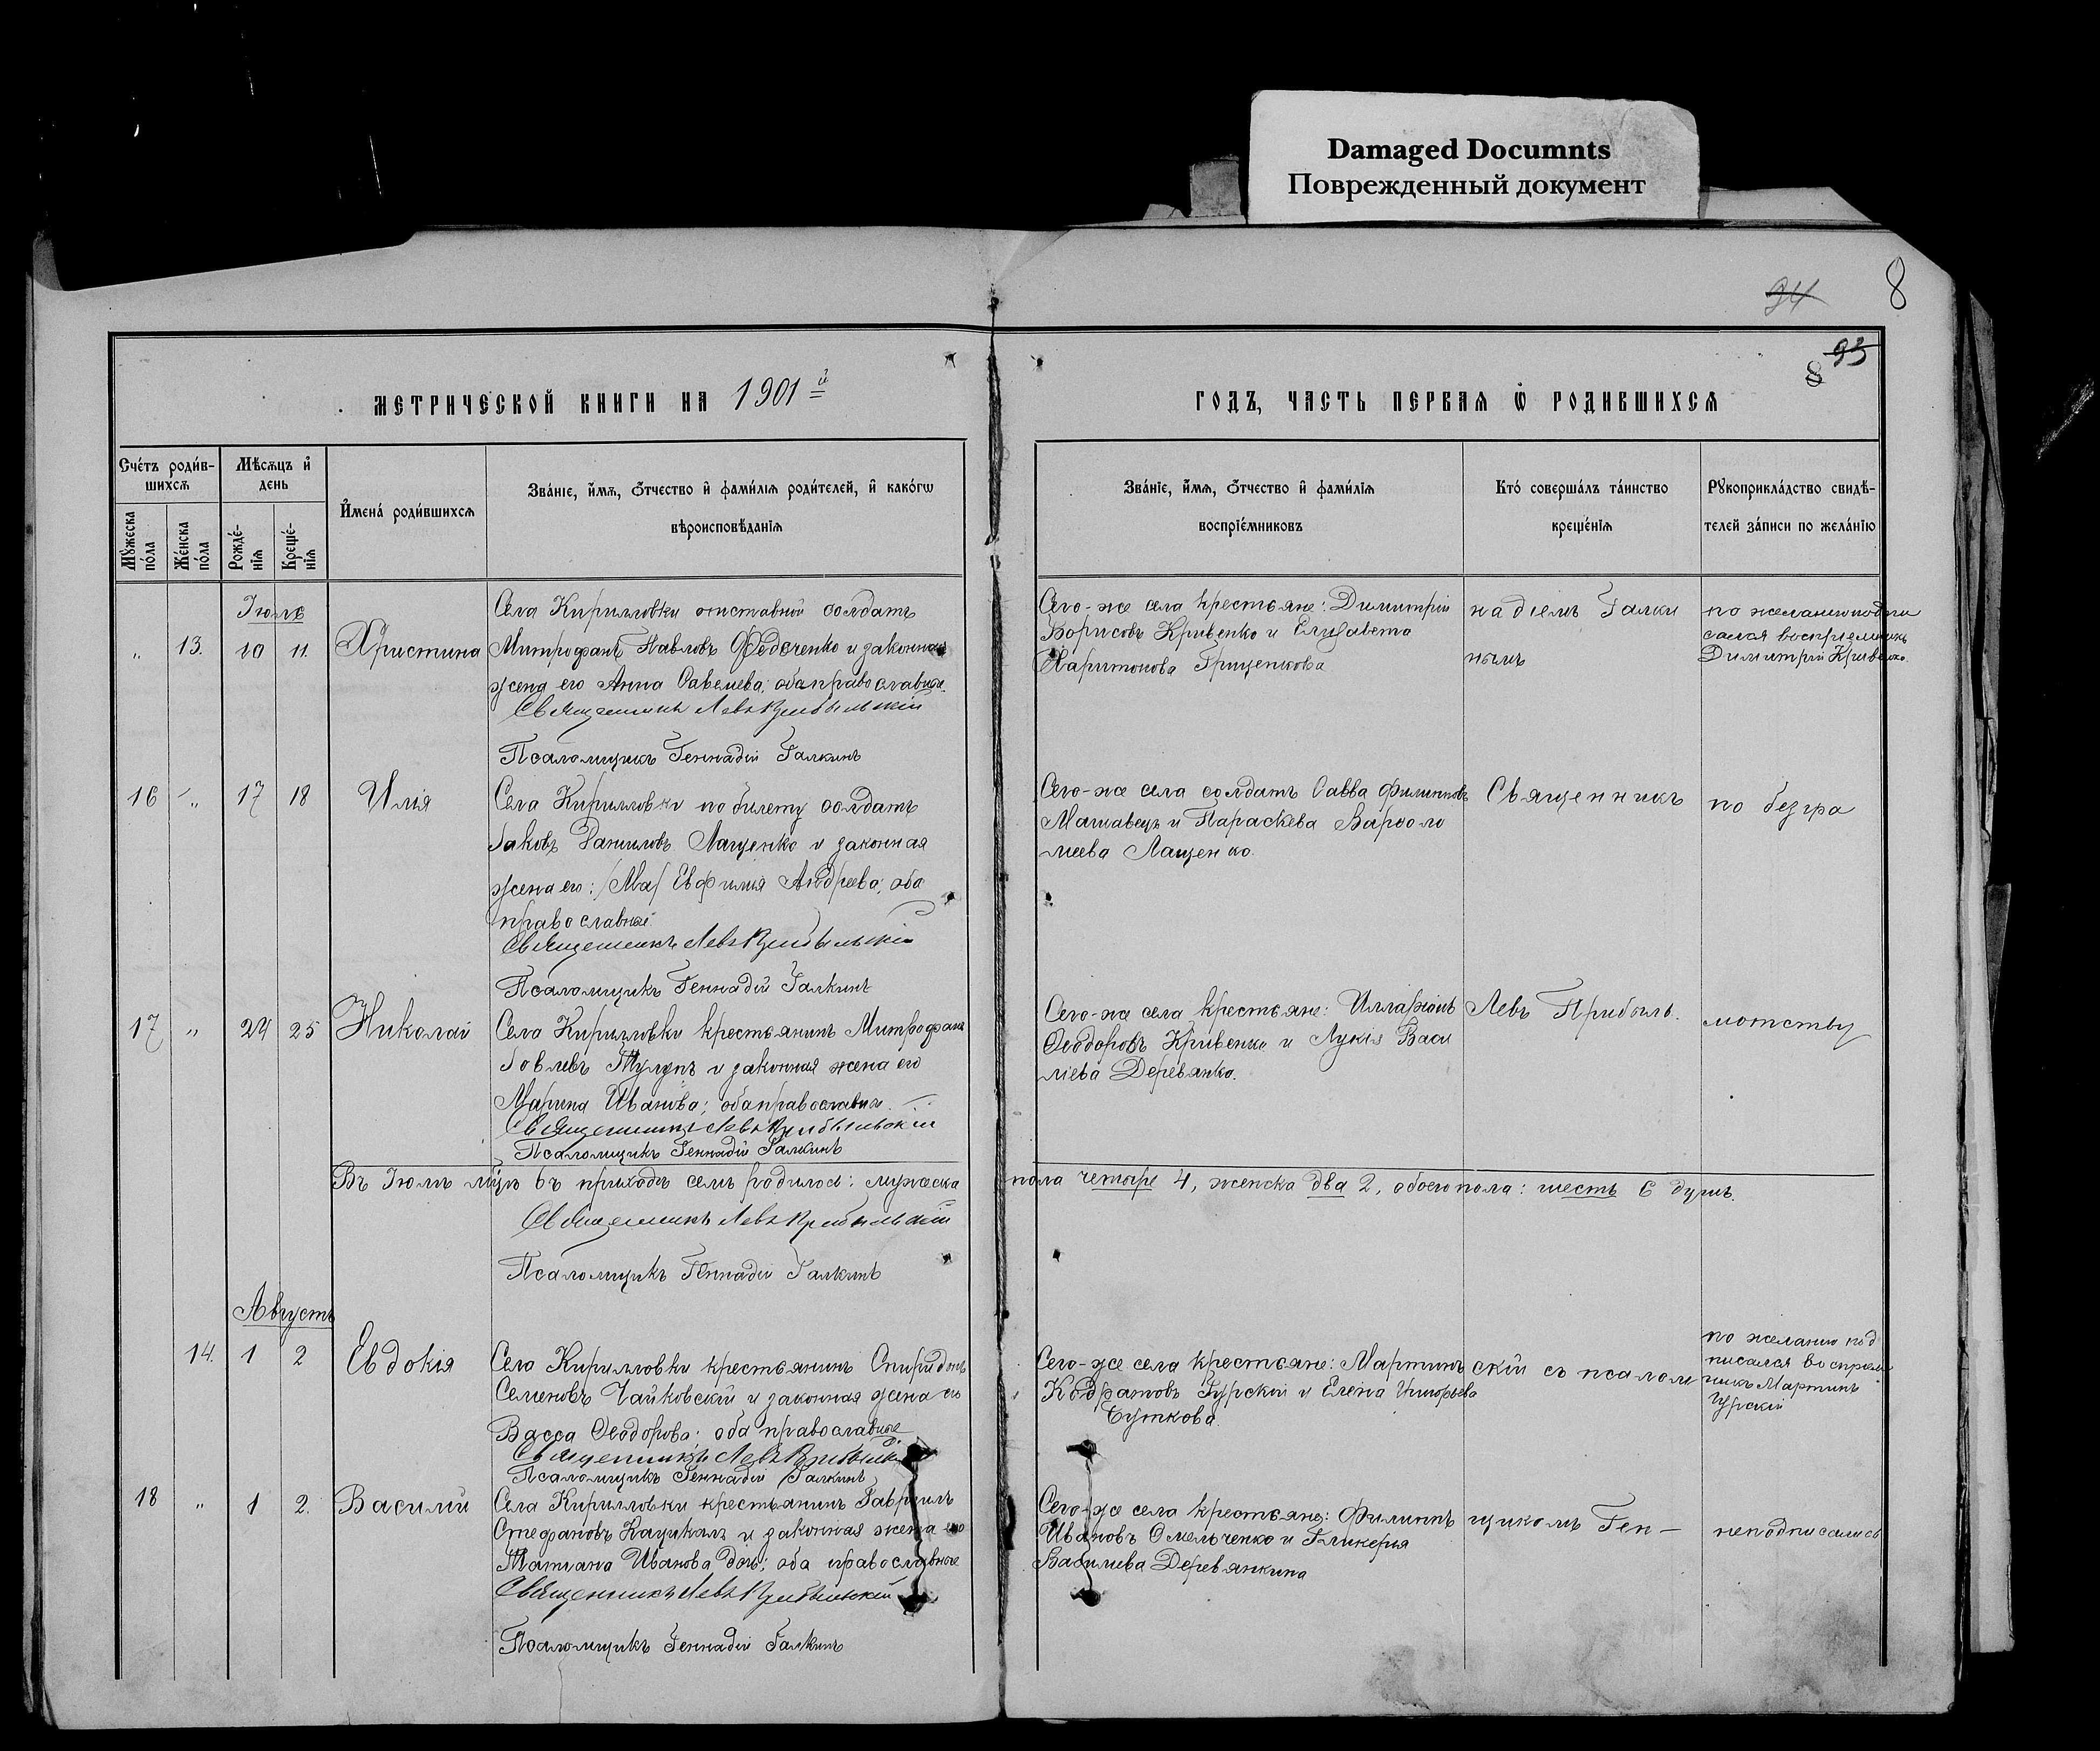 Damaged Documnts
Поврежденный документ
94
8
95
8
МЕТРИЧЕСКОЙ КНИГИ НА 1901й
ГОДЪ, ЧАСТЬ ПЕРВАЯ Ѡ РОДИВШИХСѦ
Счétъ роди́в-
шихсѧ
Мꙋ́жеска по́ла
Же́нска по́ла
Мѣ́сѧцъ и҆ де́нь
Рожде́-нїѧ
Креще́-нїѧ
И҆мена̀ роди́вшихсѧ
Зва́нїе, и҆́мѧ, ѻ҆́тчество и҆ фами́лїѧ роди́телей, и҆ како́гѡ
вѣроисповѣ́данїѧ
Зва́нїе, и҆́мѧ, ѻ҆́тчество и҆ фами́лїѧ
воспрїе́мниковъ
Кто́ соверша́лъ та́инство
креще́нїѧ
Рꙋкоприкла́дство свидѣ́-
телей за́писи по жела́нїю
Іюль
„ 13. 10 11. Христина
Села Кирилловки отставной солдатъ
Митрофанъ Павловъ Федченко и законная
жена его Анна Савелева; оба православные.
Священникъ Левъ Прибыльскій
Псаломщикъ Геннадій Галкинъ
Сего-же села крестьяне: Димитрій
Борисовъ Кривенко и Елисавета
Харитонова Грищенкова
надіемъ Галки
нымъ
по желанію подпи
сался воспріемникъ
Димитрій Кривенко.
16 „ 17 18 Илія
Села Кирилловки по билету солдатъ
Іаковъ Даниловъ Лащенко и законная
жена его: Евфимія Андреева; оба
православные
Священникъ Левъ Прибыльскій
Псаломщикъ Геннадій Галкинъ
Сего-же села солдатъ Савва Филипповъ
Маловецъ и Параскева Варфоло
меева Лащенко.
Священникъ
по безгра
17 „ 24 25 Николай
Села Кирилловки крестьянинъ Митрофанъ
Іовлевъ Тулупъ и законная жена его
Марина Иванова; оба православные
Священникъ Левъ Прибыльскій
Псаломщикъ Геннадій Галкинъ
Сего-же села крестьяне: Илларіонъ
Ѳеодоровъ Кривенко и Лукія Васи
ліева Деревянко.
Левъ Прибыль.
мотству
Въ Іюлѣ мцѣ въ приходѣ семъ родилось: мужеска
пола четыре 4, женска два 2, обоего пола: шесть 6 душъ.
Священникъ Левъ Прибыльскій
Псаломщикъ Геннадій Галкинъ
Августъ
14. 1 2 Евдокія
Села Кирилловки крестьянинъ Спиридонъ
Семеновъ Чайковскій и законная жена его
Васса Ѳеодорова; оба православные
Священникъ Левъ Прибыльскій
Псаломщикъ Геннадій Галкинъ
Сего-же села крестьяне: Мартинъ
Кодратовъ Гурскій и Елена Григорьева
Буткова.
скій съ псалом
по желанію под
писался воспріем
никъ Мартинъ
Гурскій
18 „ 1 2. Василій
Села Кирилловки крестьянинъ Гавріилъ
Стефановъ Кацикалъ и законная жена его
Татіана Иванова дочь; оба православные
Священникъ Левъ Прибыльскій
Псаломщикъ Геннадій Галкинъ
Сего-же села крестьяне: Филиппъ
Ивановъ Омельченко и Гликерія
Василиева Деревянкина
щикомъ Ген-
неподписались